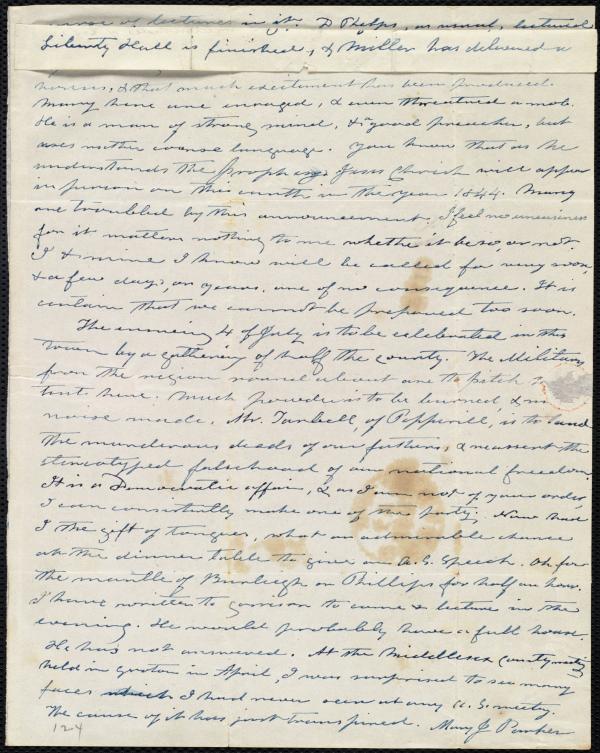 course of lectures in it. D Phelps, as usual, lectured
Liberty Hall is finished, & Miller has delivered a
horses, & that much excitement has been produced.
Many here are enraged, & even threatened a mob.
He is a man of strong mind, & a good preacher, but
uses rather coarse language. You know that as he
understands the prophecy, Jesus Christ will appear
in person on this earth, in the year 1844. Many
are troubled by this announcement, I feel no uneasiness
for it matters nothing to me whether it be so, or not.
I & mine I know will be called for very soon,
& a few days, or years, are of no consequence. It is
certain that we cannot be prepared too soon.
The ensuing 4 of July is to be celebrated in this
town by a gathering of half the county. The Military
from the region round about are to pitch
tents here. Much powder is to be burned, &
noise made. Mr. Tarbell, of Pepperill, is to laud
the murderous deeds of our fathers, & reassert the
stereotyped falsehood of our national freedom.
It is a Democratic affair, & as I am not of your order,
I can consistently make one of the party. Now had
I the gift of tongues, what an admirable chance
at the dinner table to give an A.S. Speech. Oh for
the mantle of Burleigh or Phillips for half an hour.
I have written to Garrison to come & lecture in the
evening. He would probably have a full house.
He has not answered. At the Middlesex County meeting
held in Groton in April, I was surprised to see many
faces which I had never seen at any A.S. meeting.
The cause of it has just transpired. Mary J Parker
124